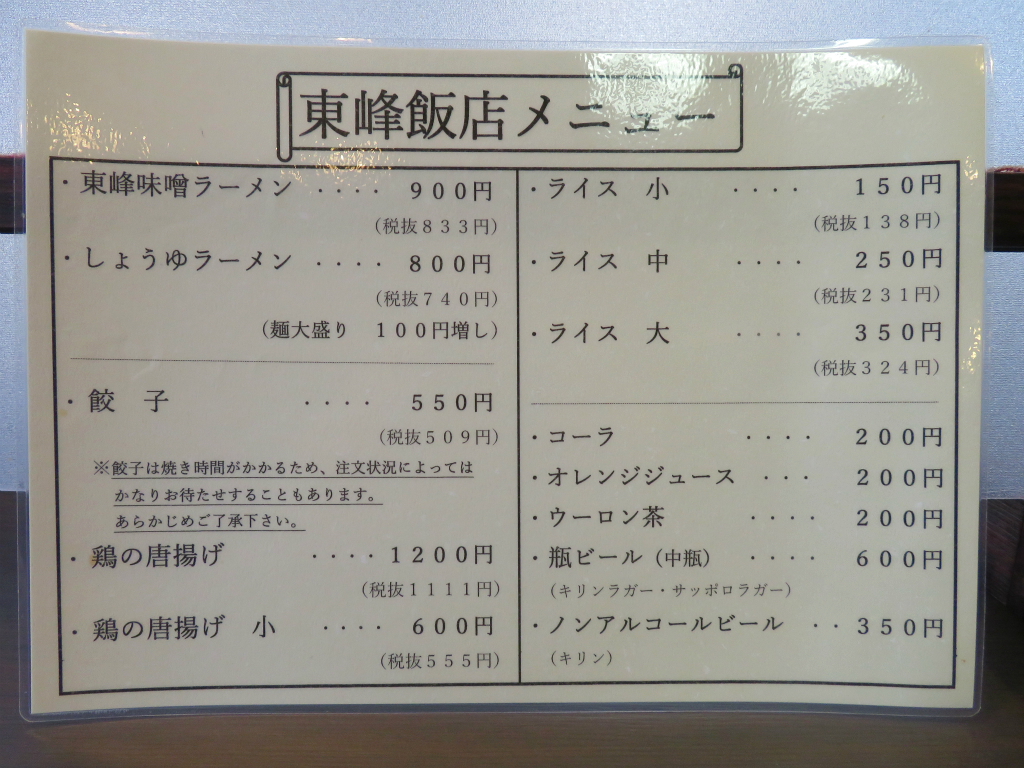 東峰飯店メニュー
・東峰味噌ラーメン ････ 900円
（税抜833円）
・しょうゆラーメン ････ 800円
（税抜740円）
（麺大盛り 100円増し）
・餃 子 ････ 550円
（税抜509円）
※餃子は焼き時間がかかるため、注文状況によっては
かなりお待たせすることもあります。
あらかじめご了承下さい。
・鶏の唐揚げ ････ 1200円
（税抜1111円）
・鶏の唐揚げ 小 ････ 600円
（税抜555円）
・ライス 小 ････ 150円
（税抜138円）
・ライス 中 ････ 250円
（税抜231円）
・ライス 大 ････ 350円
（税抜324円）
・コーラ ････ 200円
・オレンジジュース ･･･ 200円
・ウーロン茶 ････ 200円
・瓶ビール（中瓶） ････ 600円
（キリンラガー・サッポロラガー）
・ノンアルコールビール ･･ 350円
（キリン）